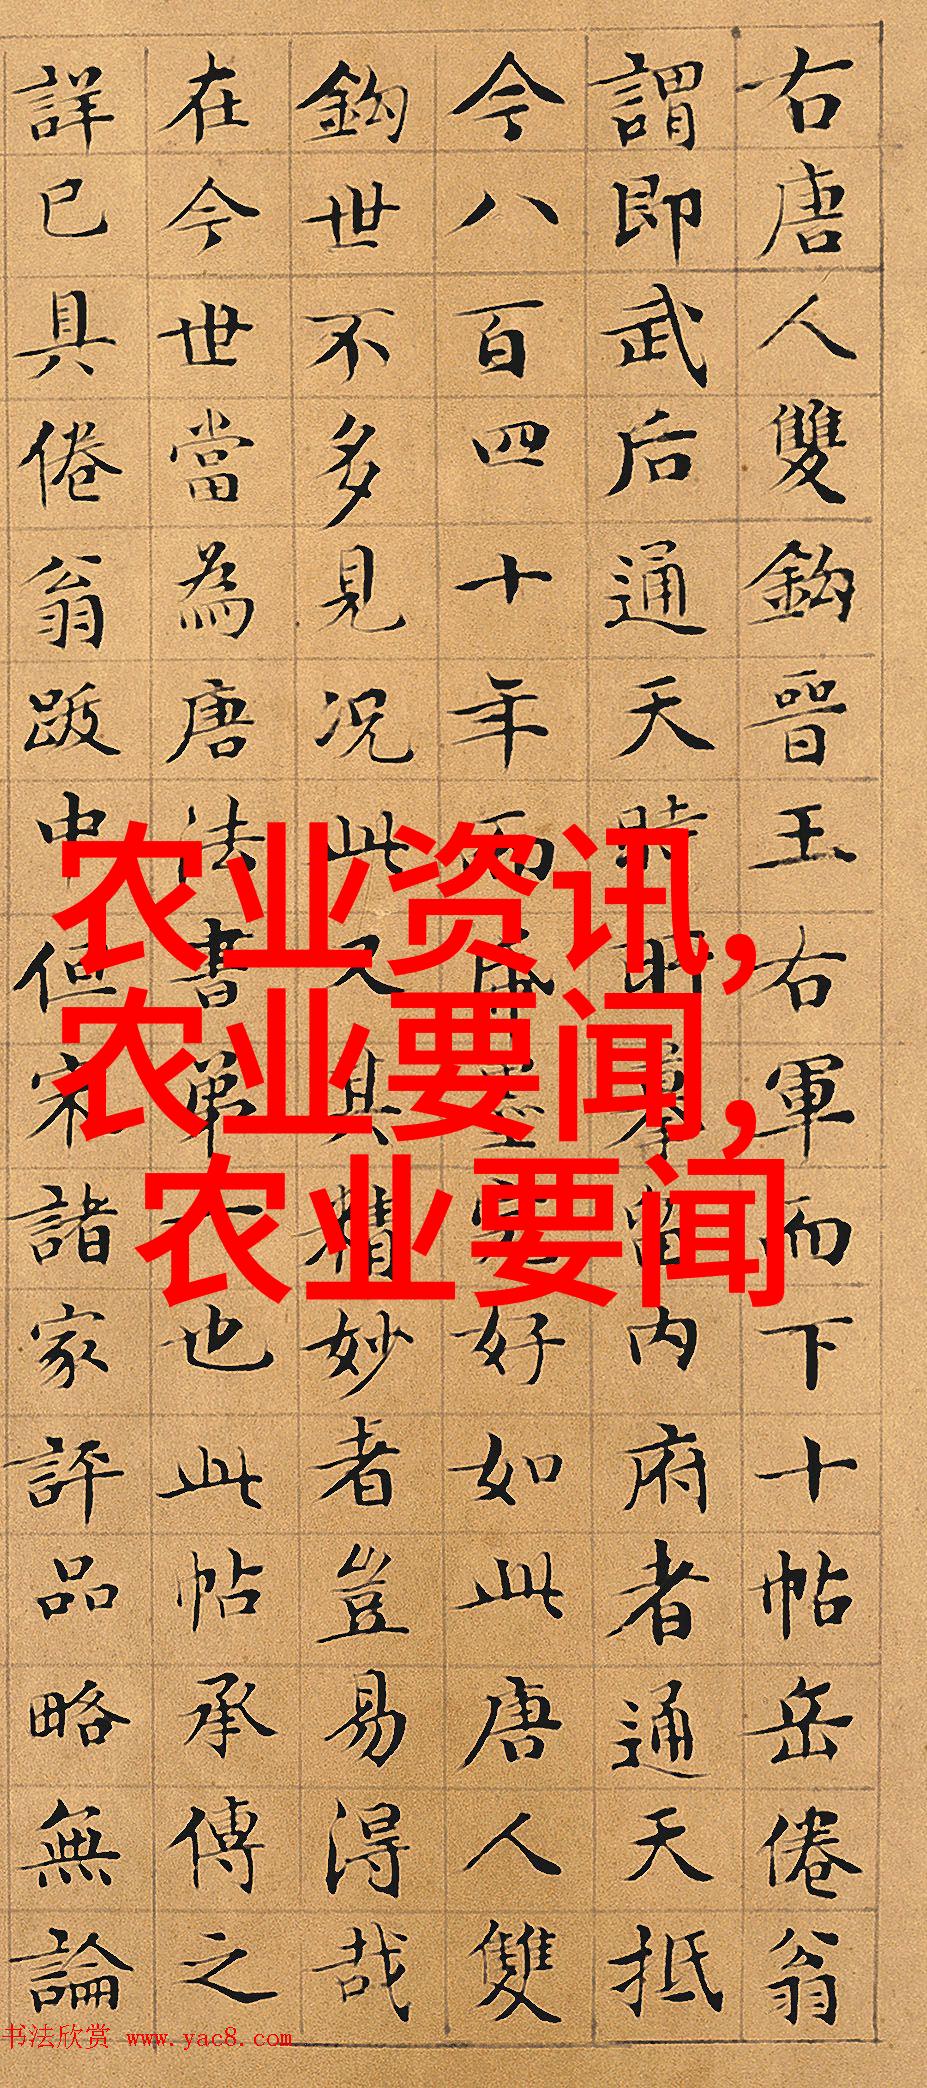 右唐人雙鈎晉王右軍而下十帖岳倦翁
謂即武后通天時所摹留内府者通天抵
今八百四十年而帋墨完好如此唐人雙
鈎世不多見况此又具精妙者豈易得哉
在今世當為唐法書第一也此帖承傳之
詳已具倦翁跋中但宋諸家評品略無論
农业资讯,
农业要闻,
农业要闻
书法欣赏 www.yac8.com